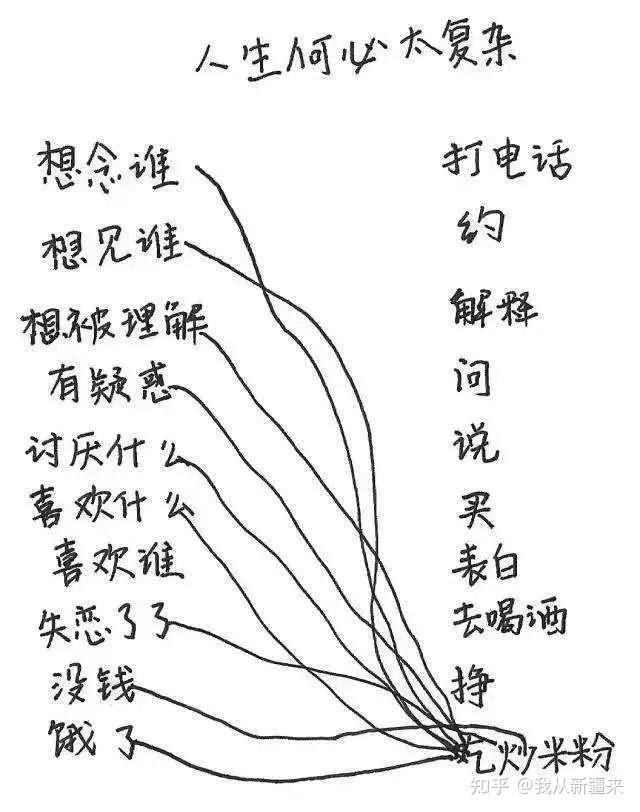 人生何必太复杂
想念谁 打电话
想见谁 约
想被理解 解释
有疑惑 问
讨厌什么 说
喜欢什么 买
喜欢谁 表白
失恋了了 去喝酒
没钱 挣
饿了 吃炒米粉
知乎 @我从新疆来